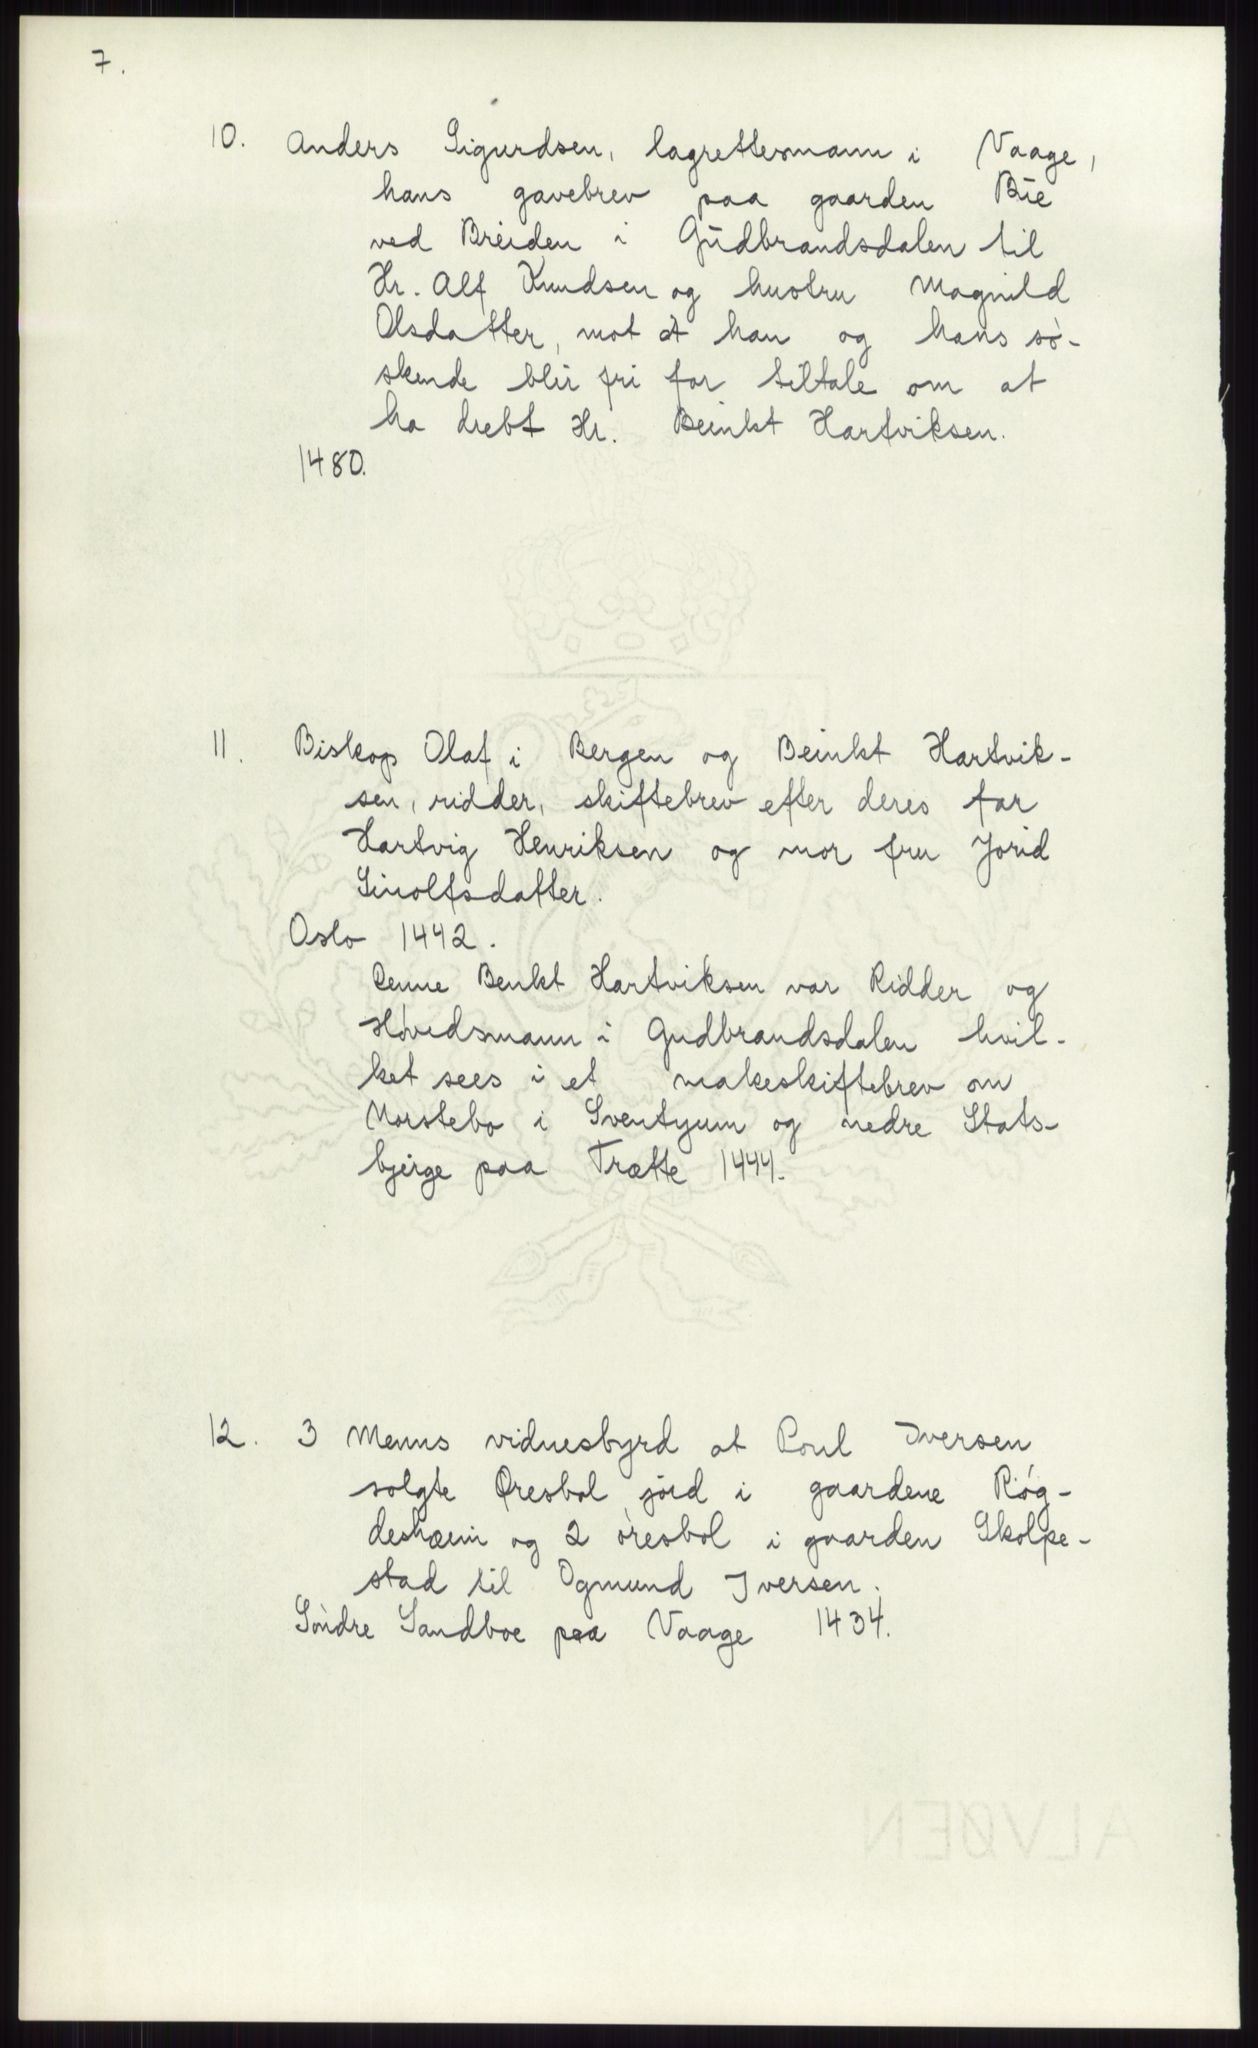 7.
10. Anders Sigurdsen, lagrettesmann i Vaage,
hans gavebrev paa gaarden Bie
ved Breiden i Gudbrandsdalen til
Hr. Alf Knudsen og hustru Magnild
Olsdatter, mot at han og hans sø-
skende blir fri for tiltale om at
ha drebt Hr. Beinkt Hartviksen.
1480.
11. Biskop Olaf i Bergen og Beinkt Hartvik-
sen, ridder, skiftebrev efter deres far
Hartvig Henriksen og mor fru Jorid
Sinolfsdatter.
Oslo 1442.
Denne Benkt Hartviksen var Ridder og
Høvedsmann i Gudbrandsdalen hvil-
ket sees i et makeskiftebrev om
Morstebo i Sventyum og nedre Stats-
bjerge paa Trætte 1444.
12. 3 Menns vidnesbyrd at Poul Iversen
solgte Øresbol jord i gaardene Røg-
deshæim og 2 øresbol i gaarden Skolpe-
stad til Ogmund Iversen.
Søndre Sandboe paa Vaage 1434.
ALVØEN